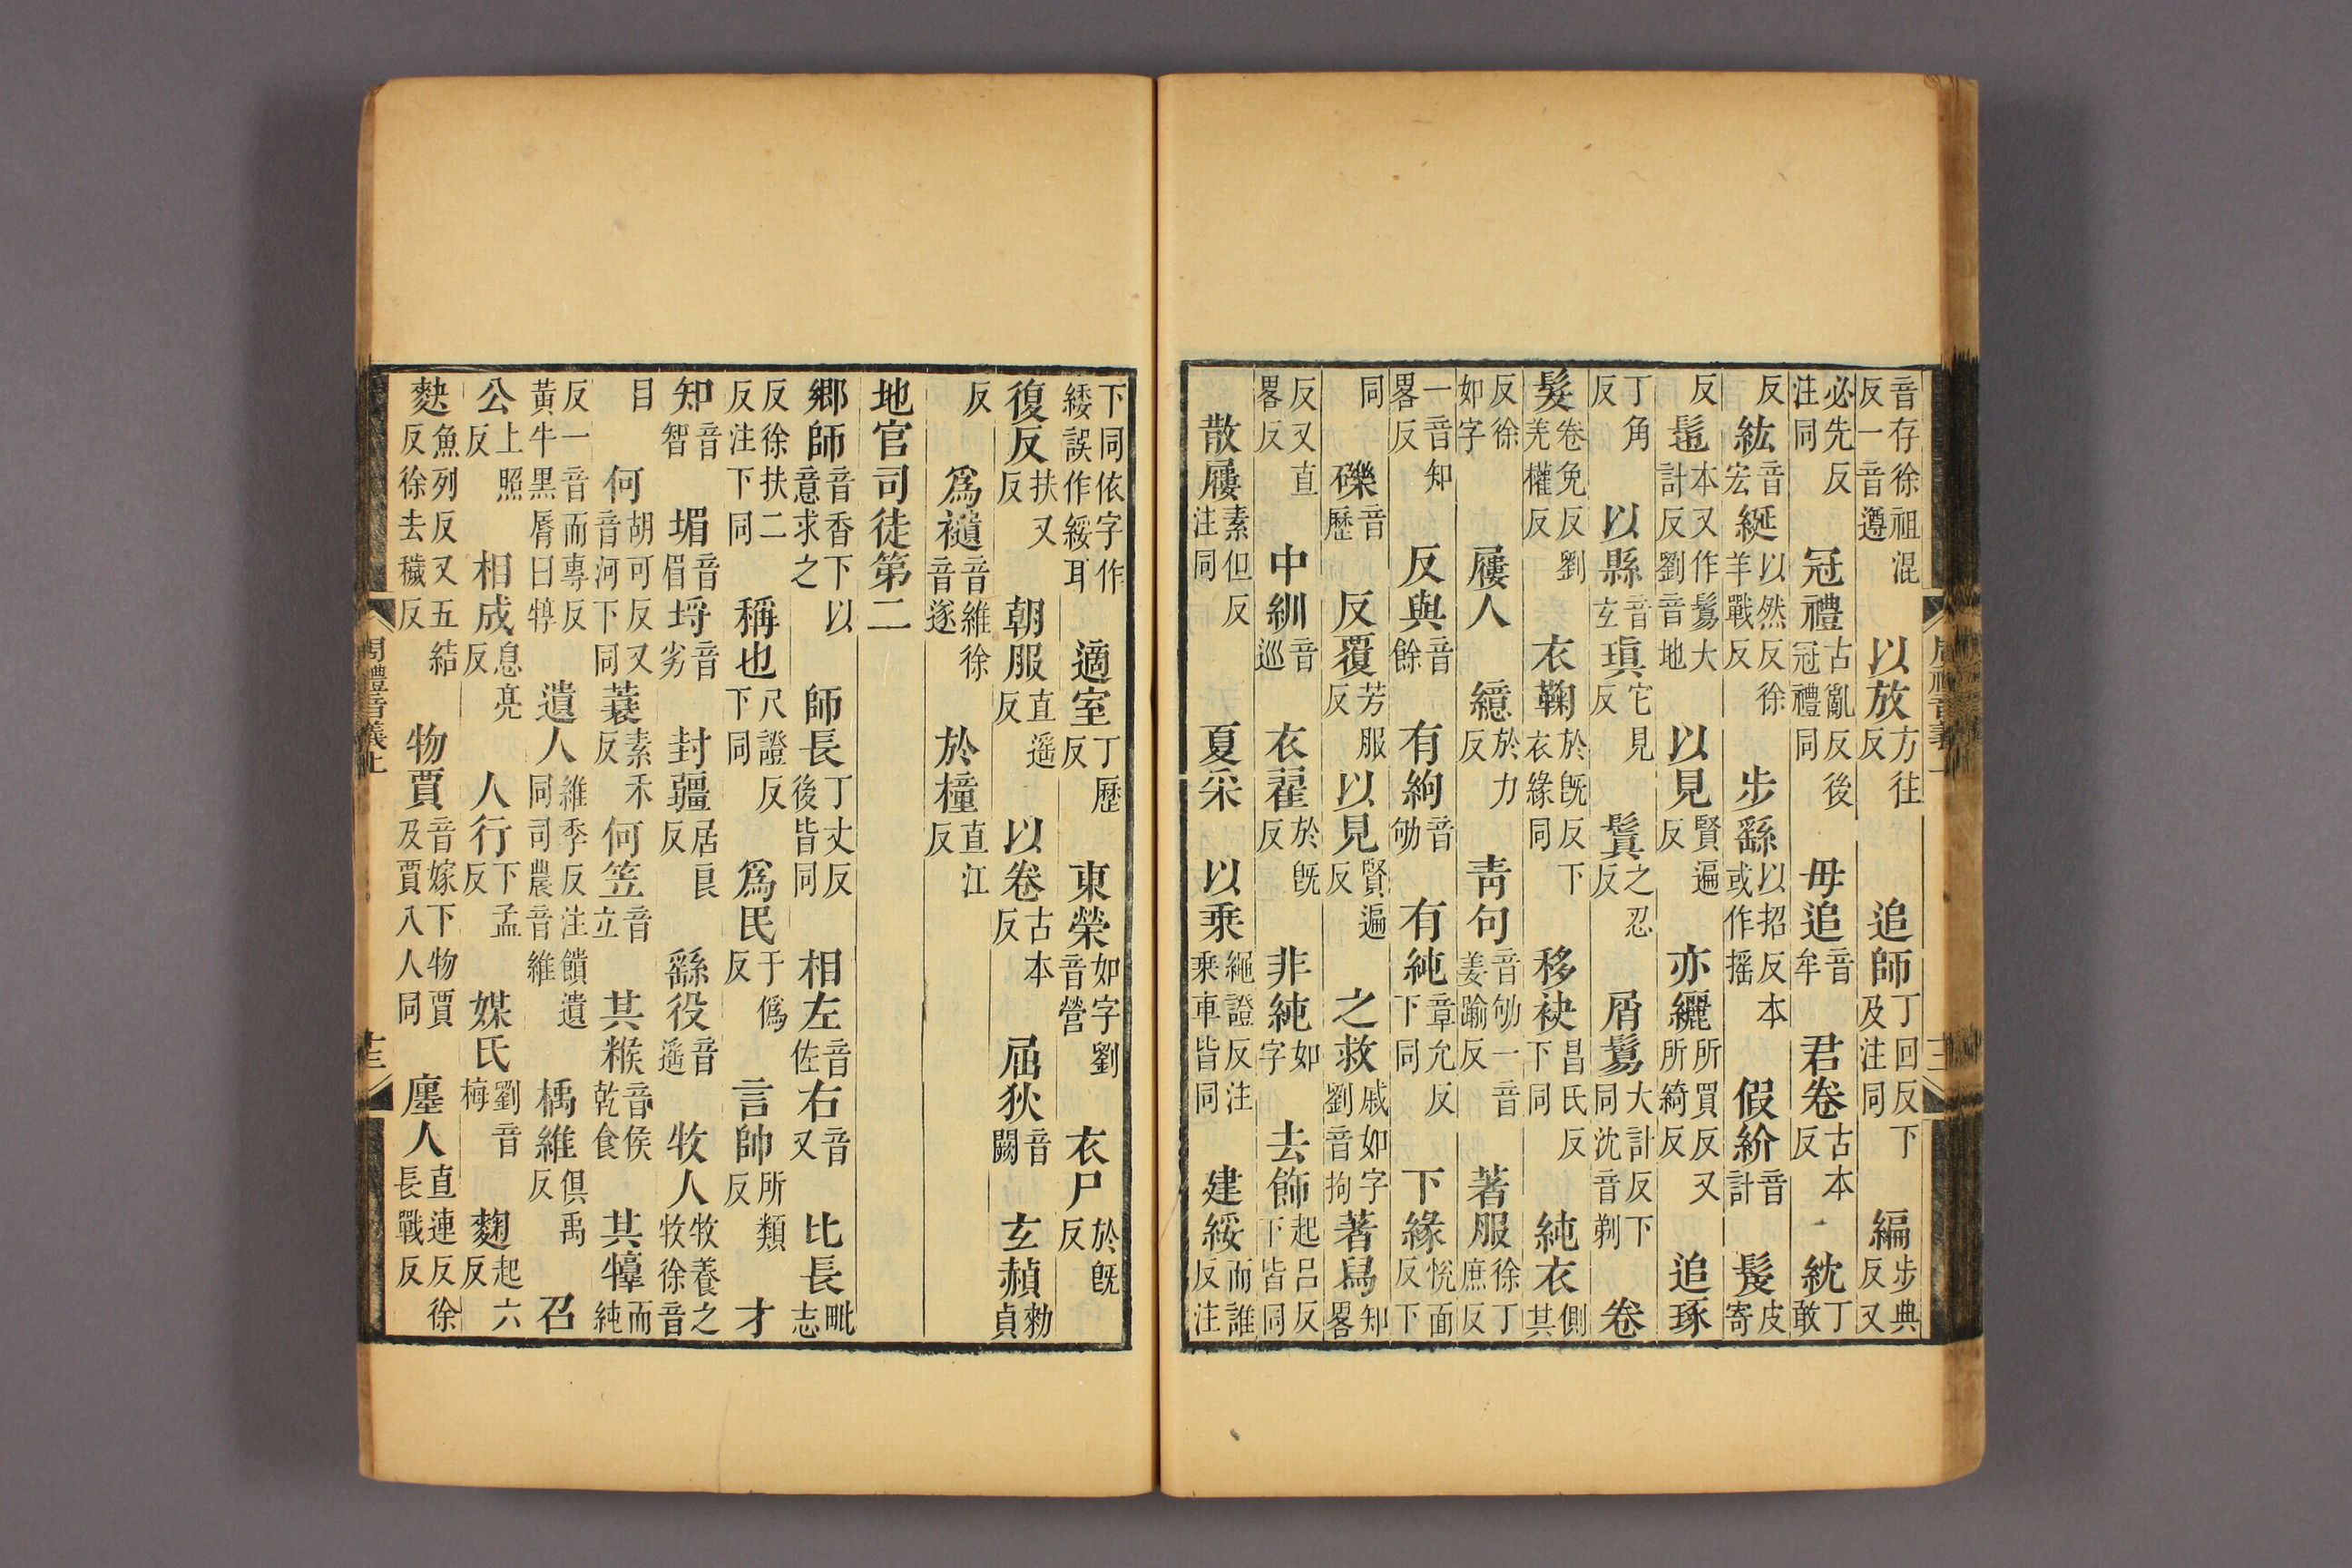 音存徐祖混反一音遵以放方往反追師丁回反下及注同編步典反又
必先反注同冠禮古亂反後冠禮同毋追音牟君卷古本反紞丁敢
反紘音宏綖以然反徐羊戰反步繇以招反本或作搖假紒音計髲皮寄
反髢本又作鬄大計反劉音地以見賢遍反亦纚所買反又所綺反追琢
丁角反以縣音玄瑱它見反鬒之忍反屑鬄大計反下同沈音剃卷
髮卷免反劉羌權反衣鞠於旣反下衣緣同移袂昌氏反下同純衣側其
反徐如字屨人繶於力反靑句音劬一音姜踰反著服徐丁庶反
一音知畧反反與音餘有絇音劬有純章允反下同下緣悅面反下
同礫音歷反覆芳服反以見賢遍反之救戚如字劉音拘著舄知畧
反又直畧反中紃音巡衣翟於旣反非純如字去飾起呂反下皆同
散屨素但反注同夏采以乗繩證反注乘車皆同建綏而誰反注
下同依字作緌誤作綏耳適室丁歷反東榮如字劉音營衣尸於旣反
復反扶又反朝服直遥反以卷古本反屈狄音闕玄赬勑貞
反爲䙡音維徐音遂於橦直江反
地官司徒第二
鄉師音香下以意求之師長丁丈反後皆同相左音佐右音又比長毗志
反徐扶二反注下同稱也尺證反下同爲民于僞反言帥所類反才
知音智堳音眉埒音劣封疆居良反繇役音遥牧人牧養之牧徐音
目何胡可反又音河下同蓑素禾反何笠音立其糇音侯乾食其犉而純
反一音而專反黃牛黑脣曰犉遺人維季反注饋遺同司農音維楀維俱禹反召
公上照反相成息亮反人行下孟反媒氏劉音梅麴起六反
麩魚列反又五結反徐去穢反物賈音嫁下物賈及賈人人同廛人直連反徐長戰反
周禮音義上
十三